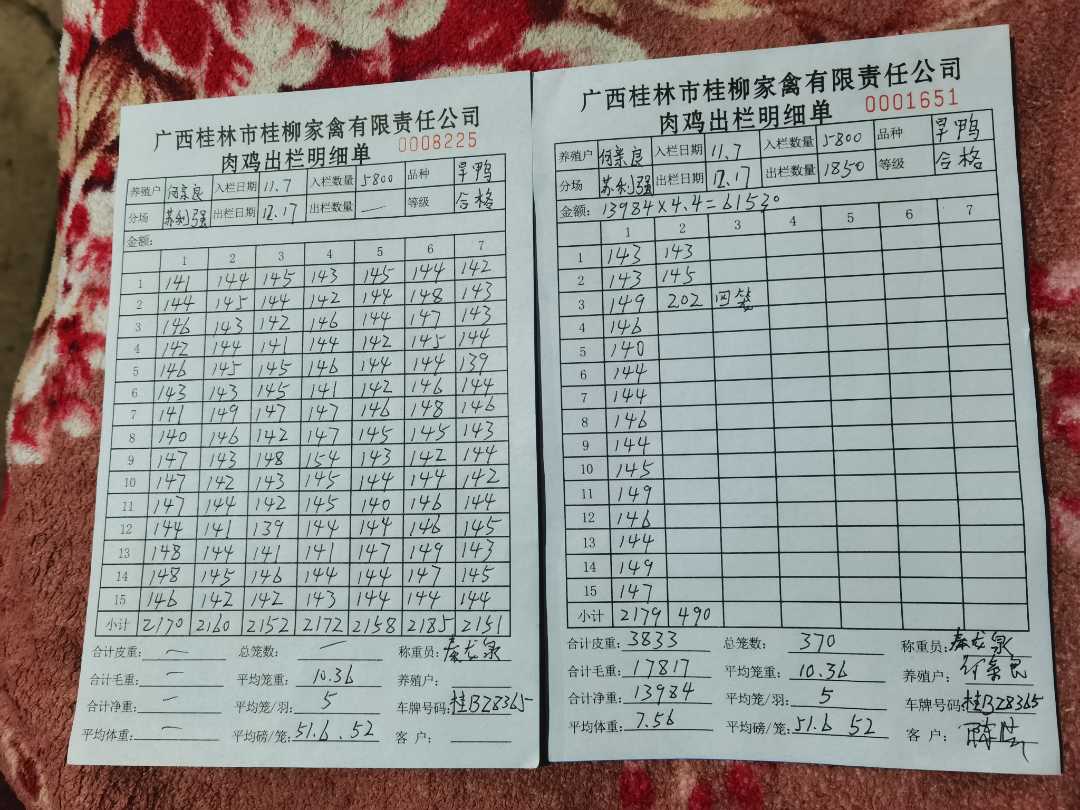 广西桂林市桂柳家禽有限责任公司
肉鸡出栏明细单 0008225
养殖户 入栏日期 11.7 入栏数量 5800 品种 旱鸭
分场 苏利强 出栏日期 12.17 出栏数量 — 等级 合格
金额:
1 2 3 4 5 6 7
1 141 144 145 143 145 144 142
2 144 145 144 142 144 148 143
3 146 143 142 146 144 147 143
4 142 144 141 144 142 145 144
5 146 145 145 146 144 144 139
6 143 143 145 141 142 146 144
7 141 149 147 147 146 148 146
8 140 146 142 147 145 145 143
9 147 143 148 154 143 142 144
10 147 142 143 145 144 144 142
11 147 144 142 145 140 146 144
12 144 141 139 144 144 146 145
13 148 144 141 141 147 149 143
14 148 145 146 144 144 147 145
15 146 142 142 143 144 144 144
小计 2170 2160 2152 2172 2158 2185 2151
合计皮重: — 总笼数: — 称重员: 秦龙泉
合计毛重: — 平均笼重: 10.36 养殖户:
合计净重: — 平均笼/羽: 5 车牌号码: 桂BZ8365
平均体重: — 平均磅/笼: 51.6 . 52 客 户:
广西桂林市桂柳家禽有限责任公司
肉鸡出栏明细单 0001651
养殖户 入栏日期 11.7 入栏数量 5800 品种 旱鸭
分场 苏利强 出栏日期 12.17 出栏数量 1850 等级 合格
金额: 13984×4.4=61530
1 2 3 4 5 6 7
1 143 143
2 143 145
3 149 202 回笼
4 146
5 140
6 144
7 144
8 146
9 144
10 145
11 149
12 146
13 144
14 149
15 147
小计 2179 490
合计皮重: 3833 总笼数: 370 称重员: 秦龙泉
合计毛重: 17817 平均笼重: 10.36 养殖户:
合计净重: 13984 平均笼/羽: 5 车牌号码: 桂BZ8365
平均体重: 7.56 平均磅/笼: 51.6 52 客 户: